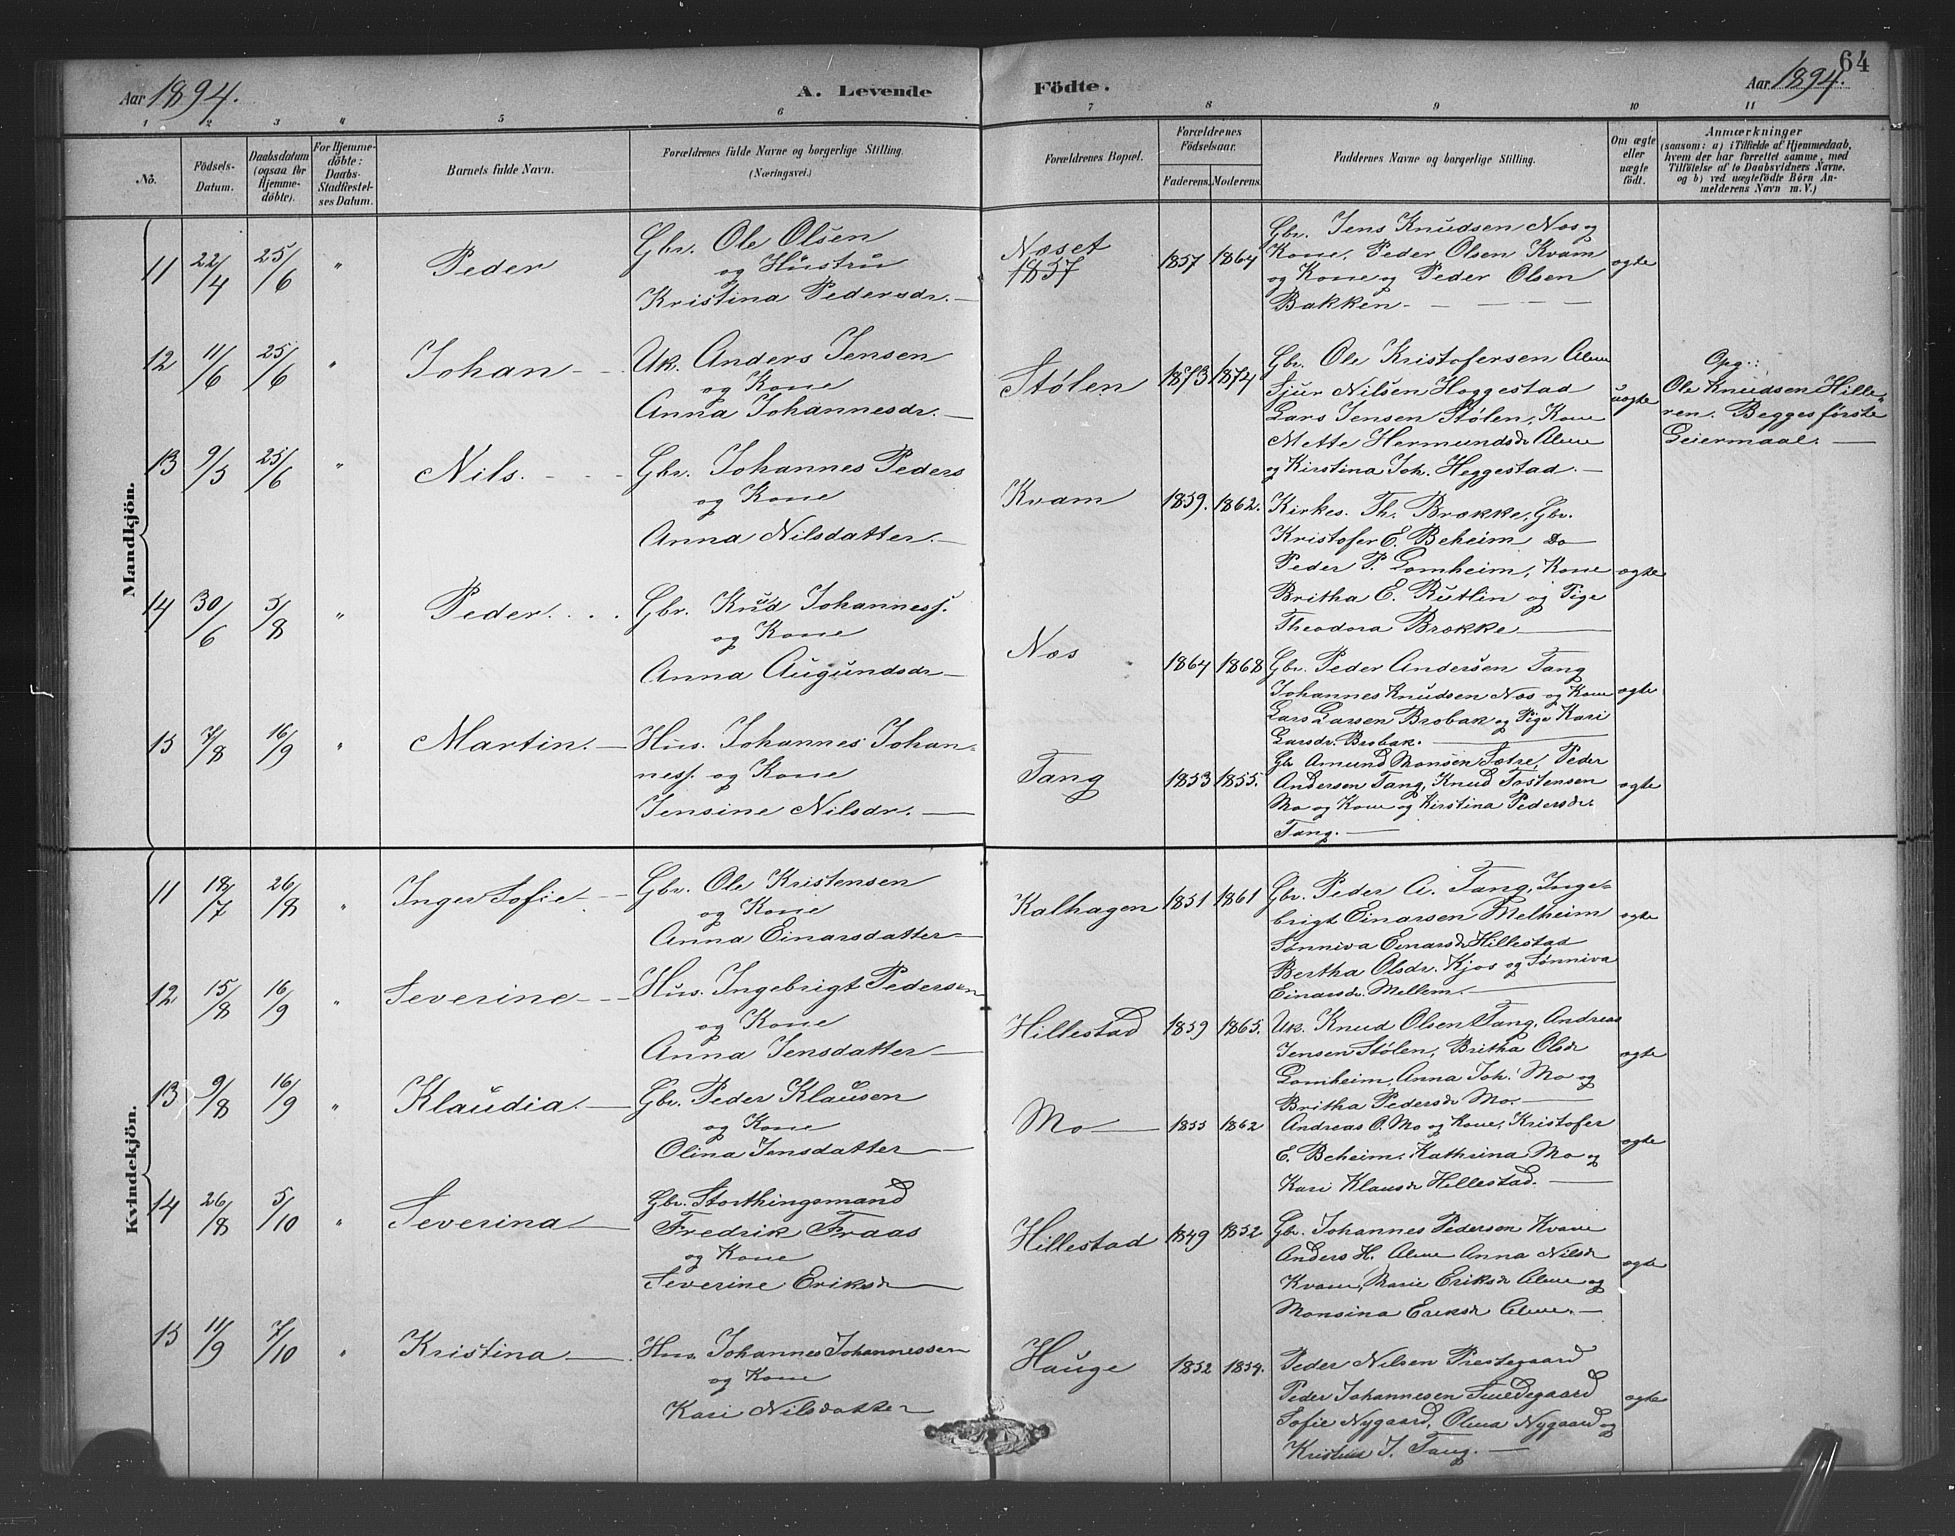 64
Aar 1894.
A. Levende
Födte.
Aar 1894.
1 2 3 4 5 6 7 8 9 10 11
No.
Födsels-
Datum.
Daabsdatum
(ogsaa for
Hjemme-
döbte).
For Hjemme-
döbte:
Daabs-
Stadfæstel-
ses Datum.
Barnets fulde Navn.
Forældrenes fulde Navne og borgerlige Stilling.
(Næringsvei.)
Forældrenes Bopæl.
Forældrenes
Födselsaar.
Faderens.
Moderens.
Faddernes Navne og borgerlige Stilling.
Om ægte
eller
uægte
födt.
Anmærkninger
(saasom: a) i Tilfælde af Hjemmedaab,
hvem der har forrettet samme, med
Tilföielse af to Daabsvidners Navne.
og b) ved uægtefödte Börn An-
melderens Navn m. V.)
Mandkjön.
11 22/4 25/6 " Peder
Gbr. Ole Olsen
og Hustru
Kristina Pedersdr.
Næset
1857
1857 1864
Gbr. Jens Knudsen Næs og
Kone, Peder Olsen Kvam
og Kone og Peder Olsen
Bakken.
ægte
12 11/6 25/6 " Johan
Uk. Anders Jensen
og Kone
Anna Johannesdr.
Stølen
1873 1874
Gbr. Ole Kristofersen Alme
Sjur Nilsen Hæggestad
Lars Jensen Stølen, Kone
Mette Hermundsdr Alme
og Kirstina Joh. Heggestad.
uægte
Opg.:
Ole Knudsen Hille-
ren. Begges første
Leiermaal.
13 9/5 25/6 " Nils.
Gbr. Johannes Peders
og Kone
Anna Nilsdatter.
Kvam
1859. 1862.
Kirkes. Th. Brække, Gbr.
Kristofer E. Beheim Do
Peder P. Lomheim, Kone
Britha E. Rutlin og Pige
Theodora Brække
ægte
14 30/6 5/8 " Peder.
Gbr. Knud Johanness.
og Kone
Anna Augundsdr
Næs
1864 1868
Gbr. Peder Andersen Tang
Johannes Knudsen Næs og Kone
Lars Larsen Brobak og Pige Kari
Larsdr. Brobak.
ægte
15 7/8 16/9 " Martin.
Hus. Johannes Johan-
ness. og Kone
Jensine Nilsdr.
Tang
1853 1855.
Gbr Amund Monsen Sætre, Peder
Andersen Tang, Knud Tostensen
Mo og Kone og Kirstina Pedersdr.
Tang.
ægte
Kvindekjön.
11 18/7 26/8 " Inger Sofie
Gbr. Ole Kristensen
og Kone
Anna Einarsdatter
Kalhagen
1851 1861
Gbr. Peder A. Tang, Inge-
brigt Einarsen Melheim
Sønniva Einarsdr Hillestad
Bertha Olsdr. Kjos og Sønniva
Einarsdr. Mellem.
ægte
12 15/8 16/9 " Severine
Hus. Ingebrigt Pedersen
og Kone
Anna Jensdatter
Hillestad
1859 1865.
Uk. Knud Olsen Tang, Andreas
Jensen Stølen, Britha Olsdr
Lomheim, Anna Joh. Mo og
Britha Pedersdr Mo.
ægte
13 9/8 16/9 " Klaudia.
Gbr. Peder Klausen
og Kone
Olina Jensdatter
Mo
1855 1862
Andreas O. Mo og Kone, Kristofer
E. Beheim. Kathrina Mo og
Kari Klausdr Hillestad.
ægte
14 26/8 5/10 " Severina
Gbr. Storthingsmand
Fredrik Fraas
og Kone
Severine Eriksdr
Hillestad
1849 1852
Gbr. Johannes Pedersen Kvam
Anders H. Alme Anna Nilsdr
Kvam, Marie Eriksdr Alme og
Monsina Eriksdr Alme.
ægte
15 11/9 7/10 " Kristina
Hus. Johannes Johannessen
og Kone
Kari Nilsdatter
Hauge
1852 1854.
Peder Nilsen Prestegaard
Peder Johannesen Smedegaard
Sofie Nygaard, Olina Nygaard og
Kristina J. Tang.
ægte